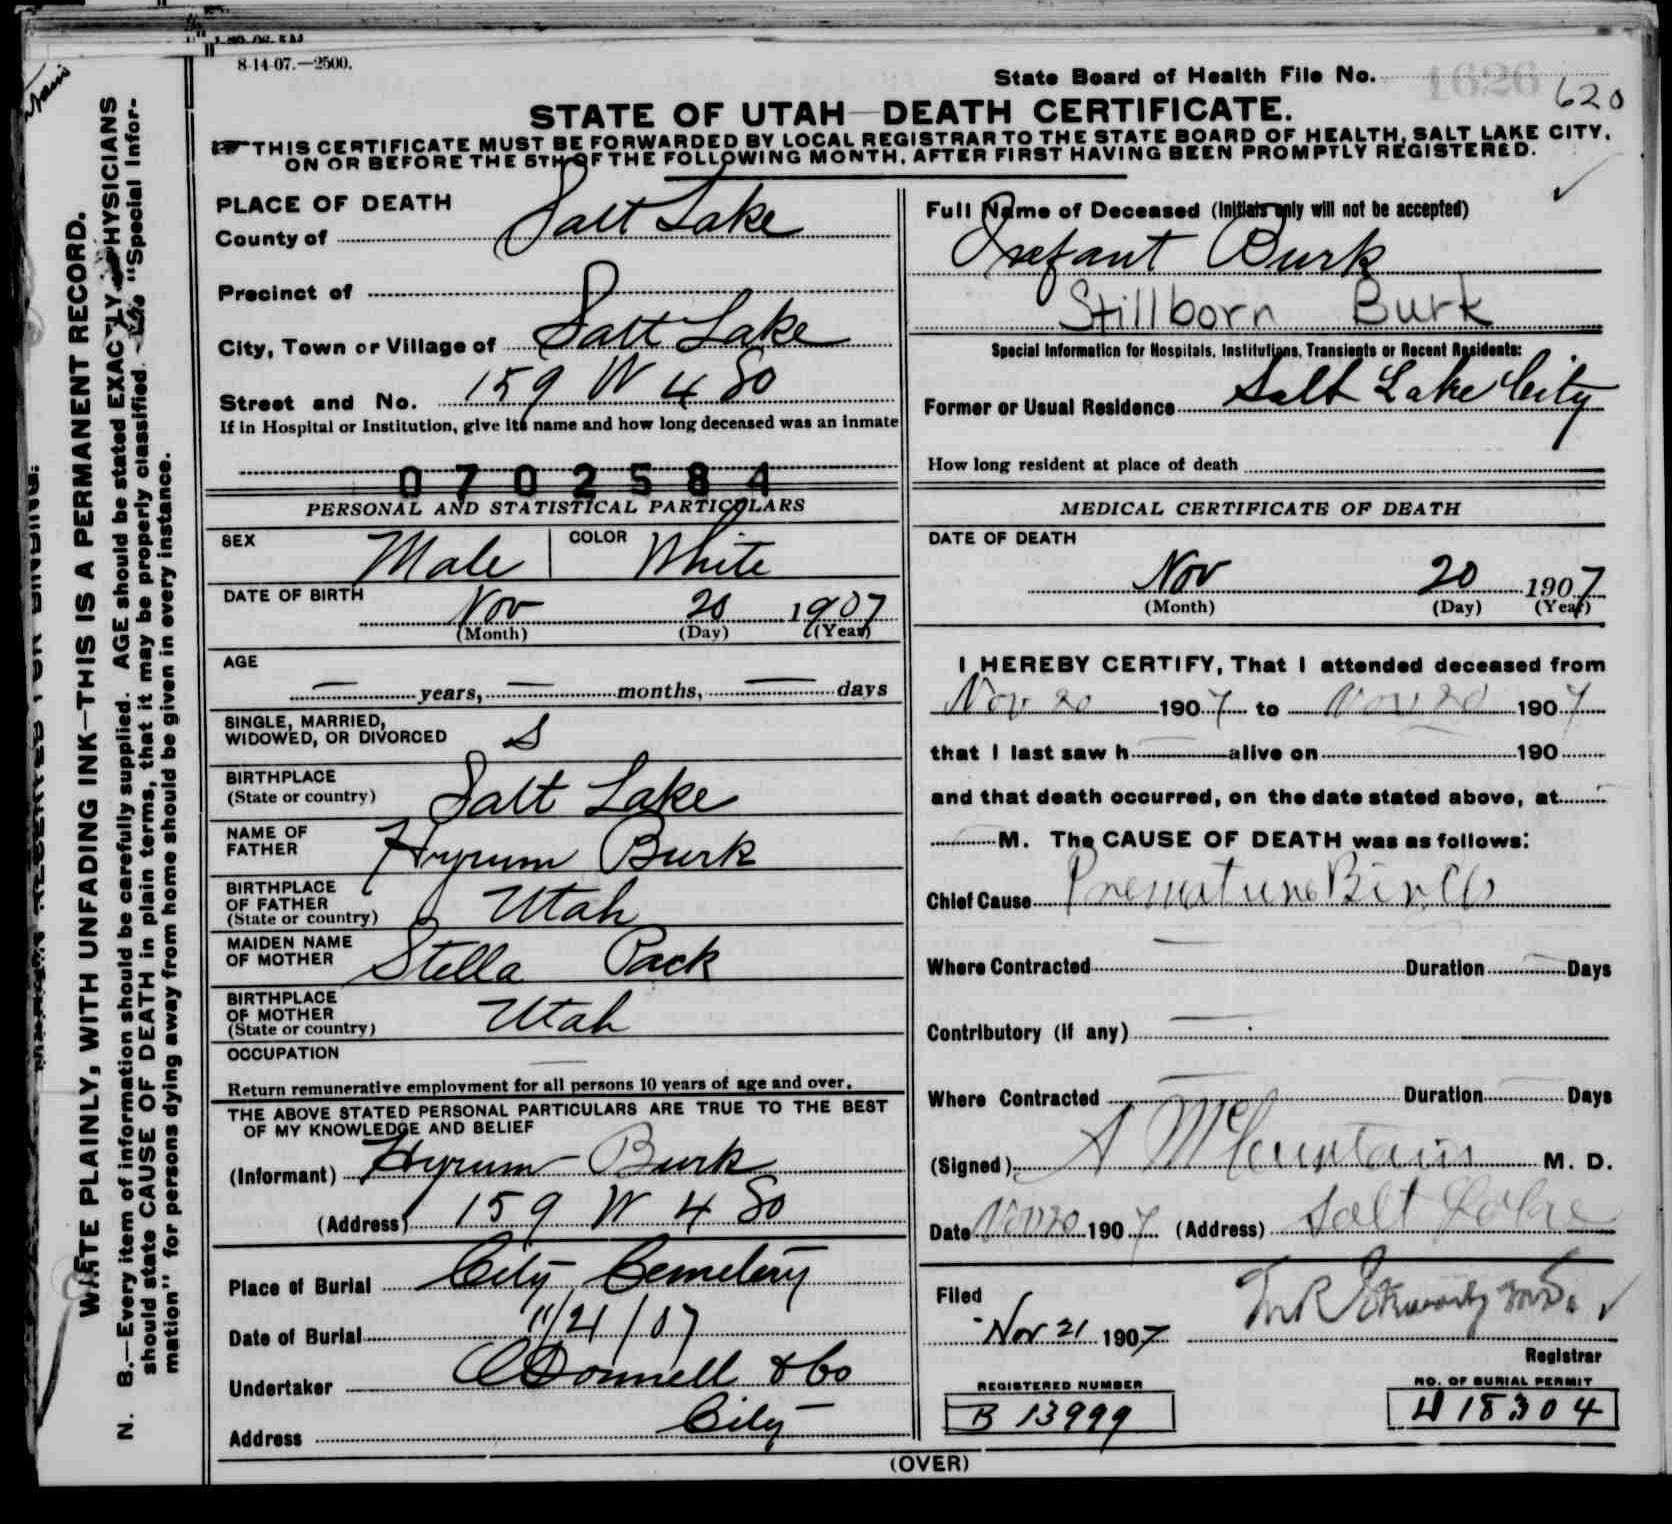 8-14-07.—2500.
State Board of Health File No. 1626
620
STATE OF UTAH—DEATH CERTIFICATE.
THIS CERTIFICATE MUST BE FORWARDED BY LOCAL REGISTRAR TO THE STATE BOARD OF HEALTH, SALT LAKE CITY,
ON OR BEFORE THE 5TH OF THE FOLLOWING MONTH, AFTER FIRST HAVING BEEN PROMPTLY REGISTERED.
WRITE PLAINLY, WITH UNFADING INK—THIS IS A PERMANENT RECORD.
N. B.—Every item of information should be carefully supplied. AGE should be stated EXACTLY PHYSICIANS
should state CAUSE OF DEATH in plain terms, that it may be properly classified. "Special Infor-
mation" for persons dying away from home should be given in every instance.
PLACE OF DEATH
County of Salt Lake
Precinct of
City, Town or Village of Salt Lake
Street and No. 159 W 4 So
If in Hospital or Institution, give its name and how long deceased was an inmate
0702584
PERSONAL AND STATISTICAL PARTICULARS
SEX Male COLOR White
DATE OF BIRTH Nov 20 1907
(Month) (Day) (Year)
AGE
— years, — months, — days
SINGLE, MARRIED,
WIDOWED, OR DIVORCED S
BIRTHPLACE
(State or country) Salt Lake
NAME OF
FATHER Hyrum Burk
BIRTHPLACE
OF FATHER
(State or country) Utah
MAIDEN NAME
OF MOTHER Stella Pack
BIRTHPLACE
OF MOTHER
(State or country) Utah
OCCUPATION —
Return remunerative employment for all persons 10 years of age and over.
THE ABOVE STATED PERSONAL PARTICULARS ARE TRUE TO THE BEST
OF MY KNOWLEDGE AND BELIEF
(Informant) Hyrum Burk
(Address) 159 W 4 So
Place of Burial City Cemetery
Date of Burial 11/21/07
Undertaker O'Donnell & Co
Address City
Full Name of Deceased (Initials only will not be accepted)
Infant Burk
Stillborn Burk
Special Information for Hospitals, Institutions, Transients or Recent Residents:
Former or Usual Residence Salt Lake City
How long resident at place of death
MEDICAL CERTIFICATE OF DEATH
DATE OF DEATH
Nov 20 1907
(Month) (Day) (Year)
I HEREBY CERTIFY, That I attended deceased from
Nov 20 1907 to Nov 20 1907
that I last saw h — alive on 190
and that death occurred, on the date stated above, at
M. The CAUSE OF DEATH was as follows:
Chief Cause Premature Birth
Where Contracted — Duration — Days
Contributory (if any) —
Where Contracted — Duration — Days
(Signed) A M. D.
Date Nov 20 1907 (Address) Salt Lake
Filed
Nov 21 1907
Registrar
REGISTERED NUMBER
B 13999
NO. OF BURIAL PERMIT
18304
(OVER)